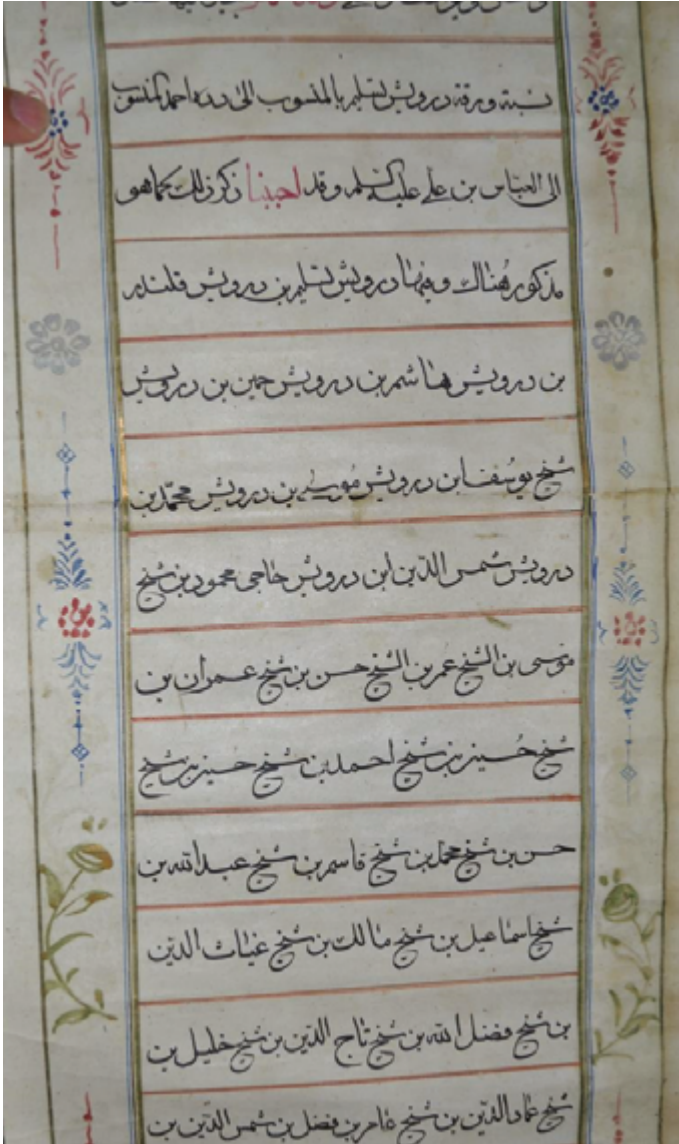 نسبة ورقة درويش تسليم بالمنسوب الى دده احمد المنسوب
الى العباس بن علي عليه السلم وقد احببنا ذكر ذلك كما هو
مذكور هناك وفيها درويش تسليم بن درويش قلندر
بن درويش هاشم بن درويش حسين بن درويش
شيخ يوسف ابن درويش موسى بن درويش محمد بن
درويش شمس الدين ابن درويش حاجي محمود بن شيخ
موسى بن الشيخ عمر بن الشيخ حسن بن شيخ عمران بن
شيخ حسين بن شيخ احمد بن شيخ حسين بن شيخ
حسن بن شيخ محمد بن شيخ قاسم بن شيخ عبد الله بن
شيخ اسماعيل بن شيخ مالك بن شيخ غياث الدين
بن شيخ فضل الله بن شيخ تاج الدين بن شيخ خليل بن
شيخ عماد الدين بن شيخ عامر بن فضل بن شمس الدين بن